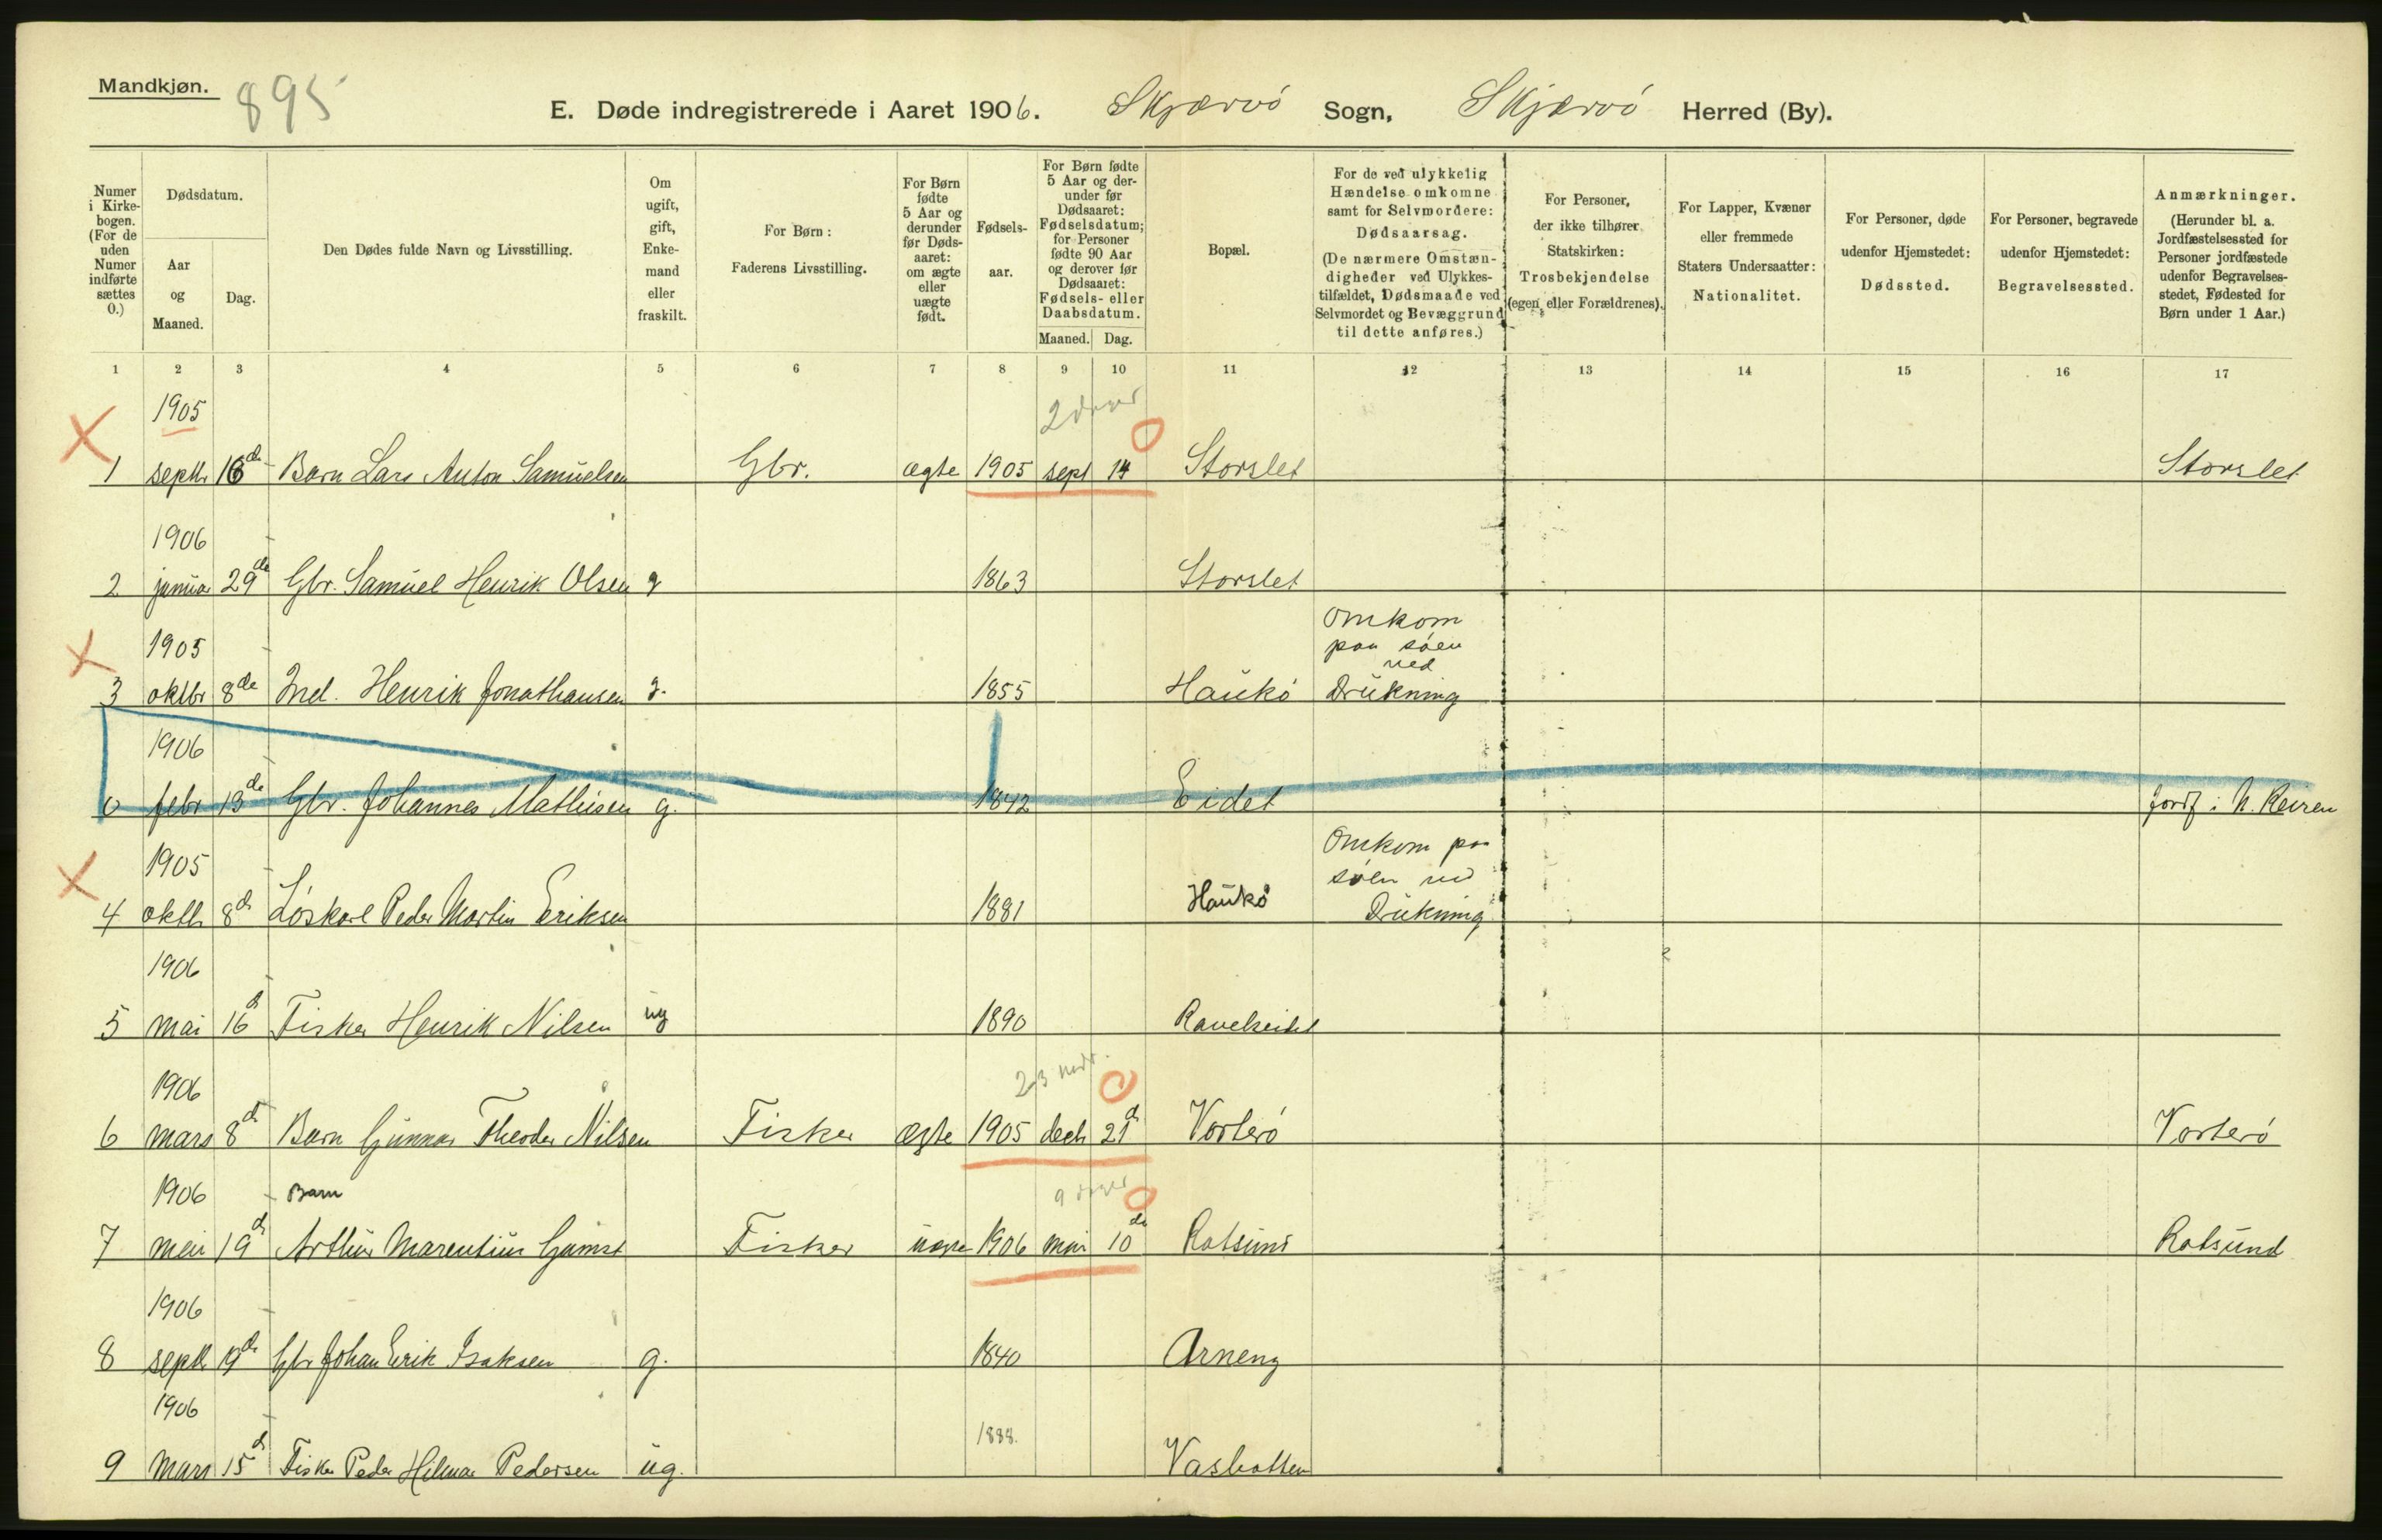 Mandkjøn.
895
E. Døde indregistrerede i Aaret 1906. Skjærvö Sogn, Skjærvö Herred (By).
Numer i Kirke-bogen. (For de uden Numer indførte sættes 0.)
Dødsdatum.
Aar og Maaned.
Dag.
Den Dødes fulde Navn og Livsstilling.
Om ugift, gift, Enke-mand eller fraskilt.
For Børn: Faderens Livsstilling.
For Børn fødte 5 Aar og derunder før Døds-aaret: om ægte eller uægte født.
Fødsels-aar.
For Børn fødte 5 Aar og der-under før Dødsaaret: Fødselsdatum; for Personer fødte 90 Aar og derover før Dødsaaret: Fødsels- eller Daabsdatum.
Maaned. Dag.
Bopæl.
For de ved ulykkelig Hændelse omkomne samt for Selvmordere: Dødsaarsag. (De nærmere Omstæn-digheder ved Ulykkes-tilfældet, Dødsmaade ved Selvmordet og Bevæggrund til dette anføres.)
For Personer, der ikke tilhører Statskirken: Trosbekjendelse (egen eller Forældrenes).
For Lapper, Kvæner eller fremmede Staters Undersaatter: Nationalitet.
For Personer, døde udenfor Hjemstedet: Dødssted.
For Personer, begravede udenfor Hjemstedet: Begravelsessted.
Anmærkninger. (Herunder bl. a. Jordfæstelsessted for Personer jordfæstede udenfor Begravelses-stedet, Fødested for Børn under 1 Aar.)
1 2 3 4 5 6 7 8 9 10 11 12 13 14 15 16 17
1905 2 dager
1 septbr 16de Barn Lars Anton Samuelsen Gbr. ægte 1905 sept 14 Storslet Storslet
1906
2 januar 29de Gbr. Samuel Henrik Olsen g 1863 Storslet
1905 Omkom paa söen ved
3 oktbr 8de Ind. Henrik Jonathansen g. 1855 Haukö Drukning
1906
0 febr 13de Gbr. Johannes Mathisen g. 1842 Eidet Jordf i N. Reisen
1905 Omkom paa söen ved
4 oktb 8de Löskarl Peder Martin Eriksen 1881 Haukö Drukning
1906
5 mai 16d Fisker Henrik Nilsen ug 1890 Ravelseidet
1906 2-3 mdr.
6 mars 8de Barn Gunnar Theodor Nilsen Fisker ægte 1905 decb 21d Vorterö Vorterö
1906 Barn 9 dager
7 mai 19d Arthur Marentius Gamst Fisker uægte 1906 mai 10de Rotsund Rotsund
1906
8 septb 19de Gbr Johan Erik Isaksen g. 1840 Arneng
1906 1888.
9 Mars 15d Fisker Peder Hilmar Pedersen ug. Vasbotten